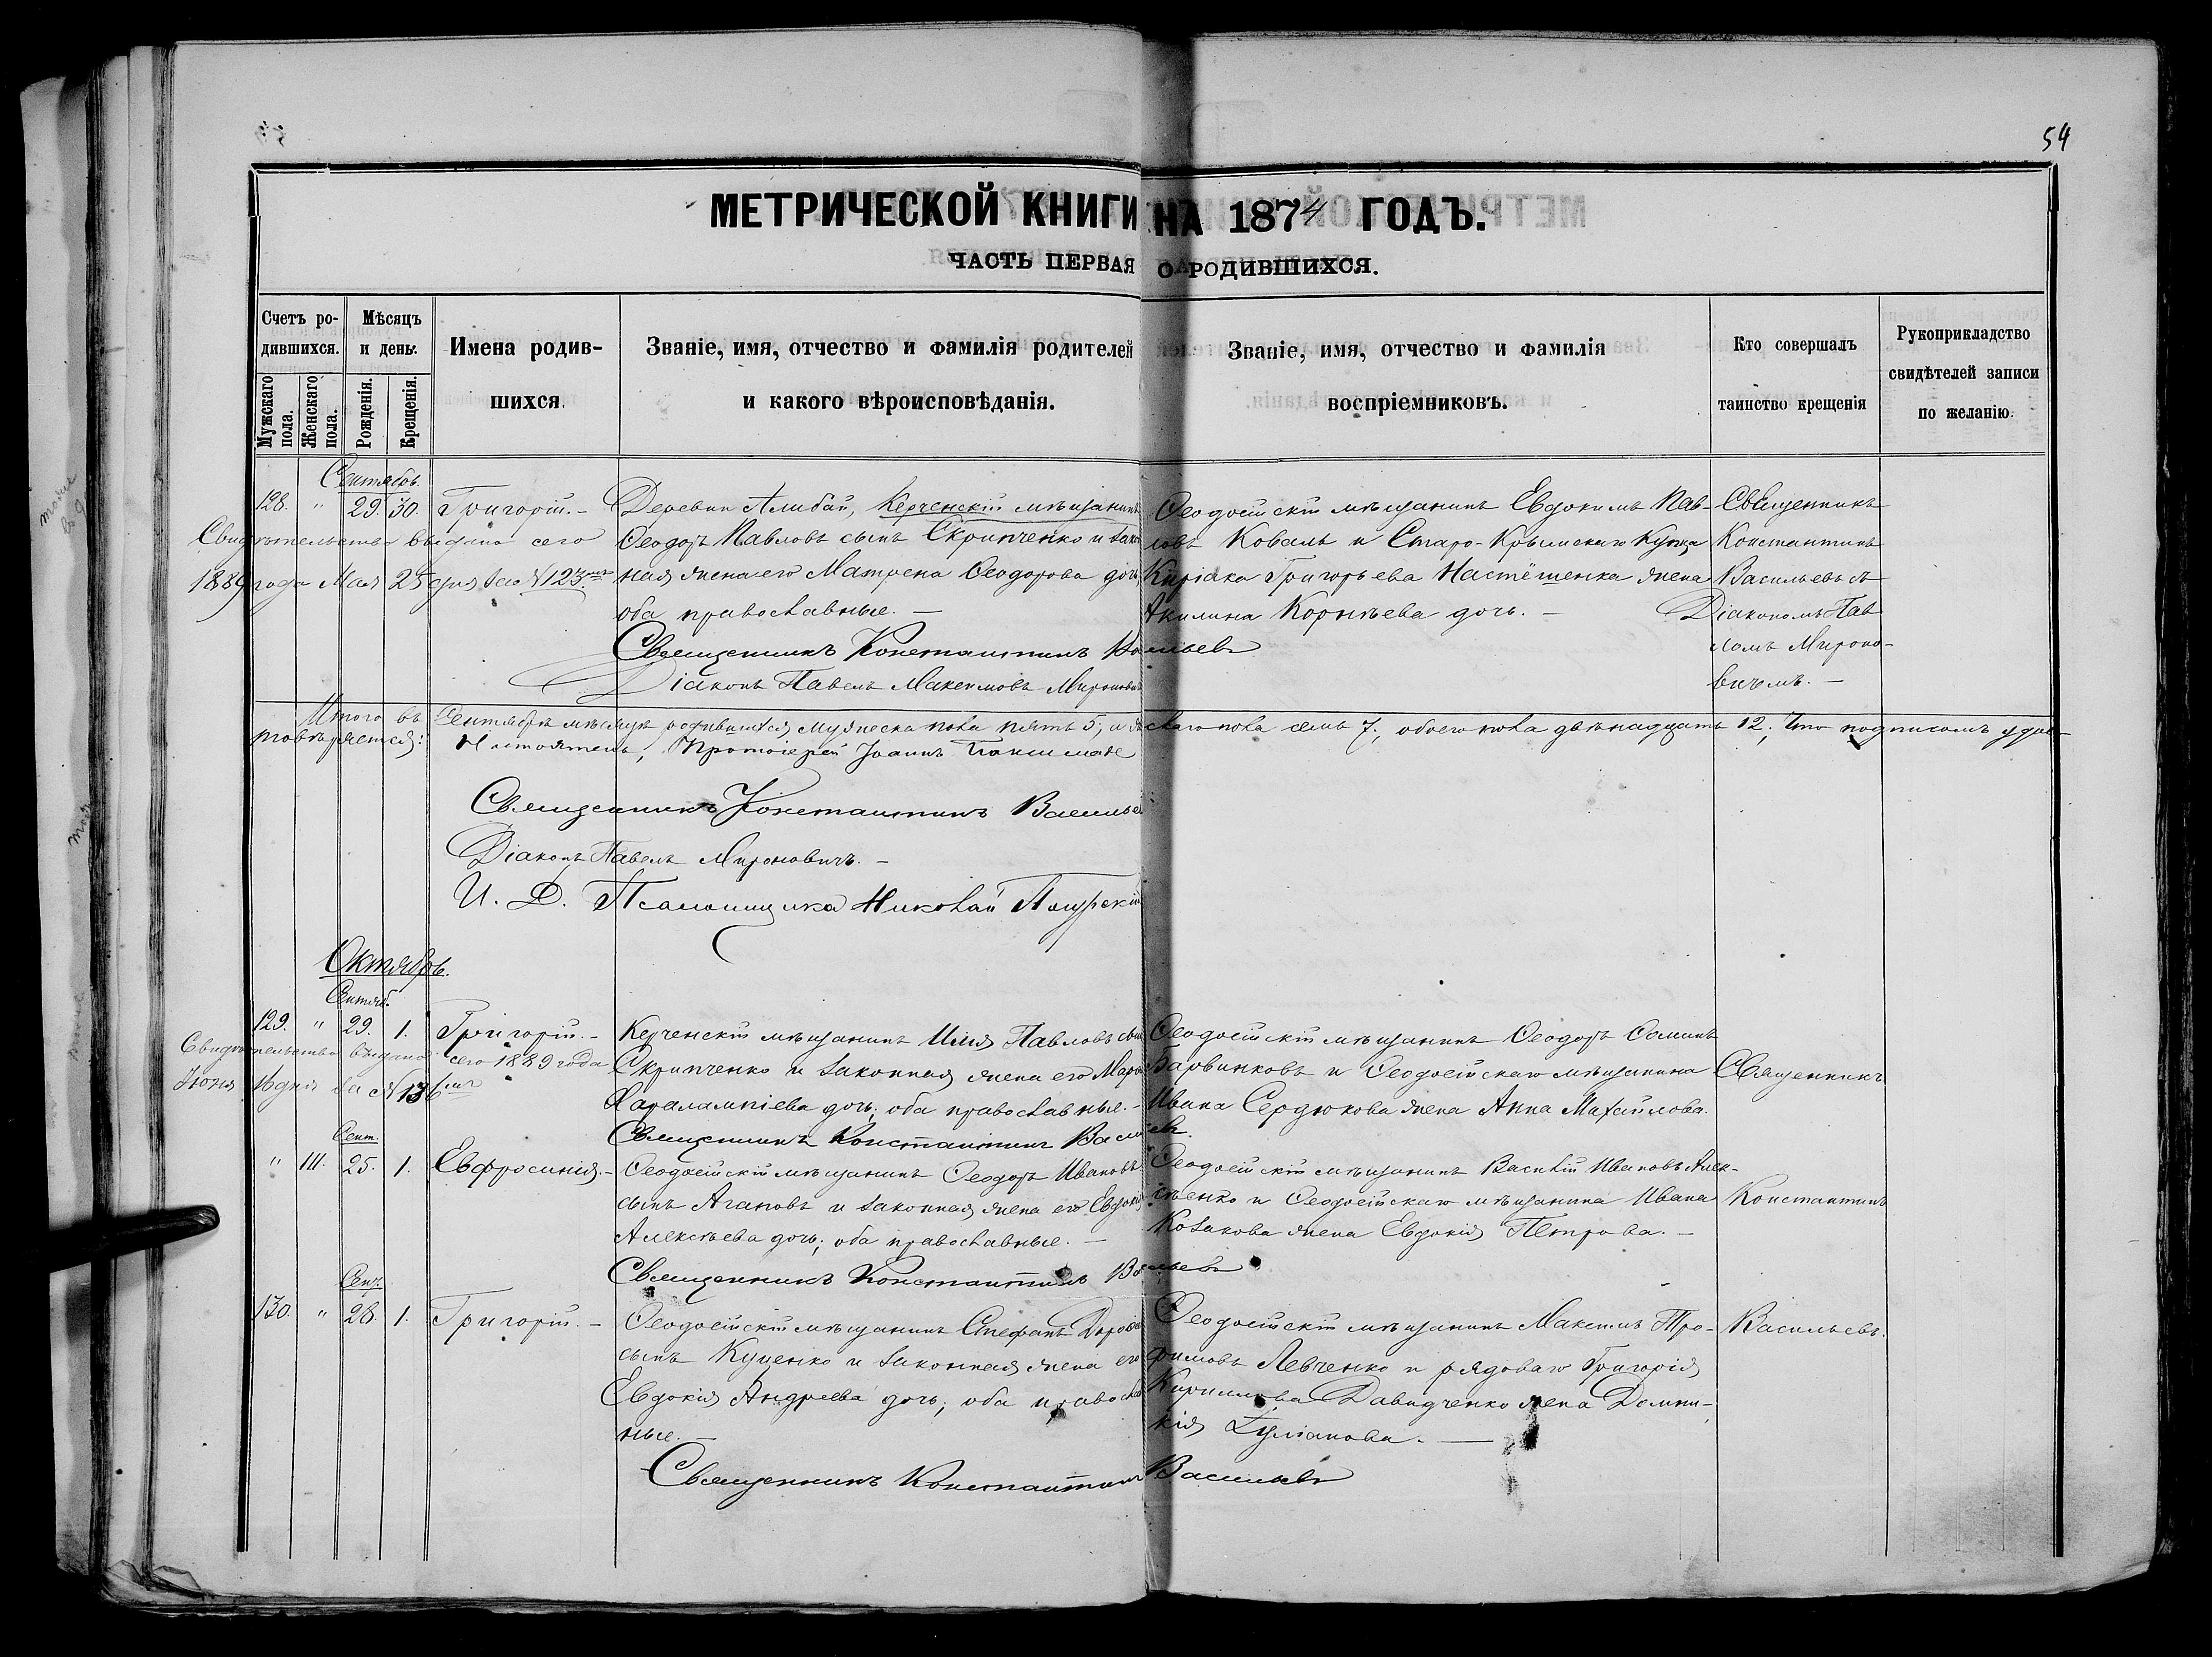 54
МЕТРИЧЕСКОЙ КНИГИ НА 1874 ГОДЪ.
ЧАСТЬ ПЕРВАЯ О РОДИВШИХСЯ.
Счетъ ро-
дившихся.
Мужскаго пола.
Женскаго пола.
Мѣсяцъ
и день.
Рожденія.
Крещенія.
Имена родив-
шихся.
Званіе, имя, отчество и фамилія родителей
и какого вѣроисповѣданія.
Званіе, имя, отчество и фамилія
воспріемниковъ.
Кто совершалъ
таинство крещенія
Рукоприкладство
свидѣтелей записи
по желанію.
Сентябрь.
128. " 29. 30. Григорій. –
Деревни Алибай, Керченскій мѣщанинъ
Ѳеодоръ Павловъ сынъ Скрипченко и закон
ная жена его Матрена Ѳеодорова дочь,
оба православные. –
Священникъ Константинъ Васильевъ
Діаконъ Павелъ Максимовъ Мироновичъ
Свидѣтельство выдано сего
1889 года Мая 25 дня за №123
Ѳеодосійскій мѣщанинъ Евдокимъ Пав-
ловъ Коваль и Старо-Крымскаго Купца
Киріака Григорьева Настёшенка жена
Акилина Корнѣева дочь. –
Священникъ
Константинъ
Васильевъ съ
Діакономъ Пав
ломъ Мироно-
вичемъ. –
Итого въ Сентябрѣ мѣсяцѣ родившихся мужеска пола пять 5, и женскаго пола семь 7, обоего пола двѣнадцать 12; Что подписомъ удос-
товѣряется:
Настоятель, Протоіерей Іоаннъ
Священникъ Константинъ Васильевъ
Діаконъ Павелъ Мироновичъ. –
И. Д. Псаломщика Николай
Октябрь.
Сентяб.
129. " 29. 1. Григорій. –
Керченскій мѣщанинъ Илія Павловъ сынъ
Скрипченко и законная жена его Марія
Харалампіева дочь; оба православные. –
Священникъ Константинъ Васильевъ
Свидѣтельство выдано сего 1889 года
Іюня дня за №136
Ѳеодосійскій мѣщанинъ Ѳеодоръ Ѳоминъ
Барвинковъ и Ѳеодосійскаго мѣщанина
Ивана Сердюкова жена Анна Махайлова.
Священникъ
Сент.
" 111. 25. 1. Евфросинія. –
Ѳеодосійскій мѣщанинъ Ѳеодоръ Ивановъ
сынъ Агаповъ и законная жена его Евдокія
Алексѣева дочь; оба православные. –
Священникъ Константинъ Васильевъ
Ѳеодосійскій мѣщанинъ Василій Ивановъ Алек-
сѣенко и Ѳеодосійскаго мѣщанина Ивана
Козакова жена Евдокія Петрова. –
Константинъ
Сент.
130. " 28. 1. Григорій. –
Ѳеодосійскій мѣщанинъ Стефанъ
сынъ Куценко и законная жена его
Евдокія Андреева дочь, оба православ
ные. –
Священникъ Константинъ Васильевъ
Ѳеодосійскій мѣщанинъ Максимъ Тро-
фимовъ Левченко и рядоваго Григорія
Кириллова Давидченко жена Домни-
кія –
Васильевъ.